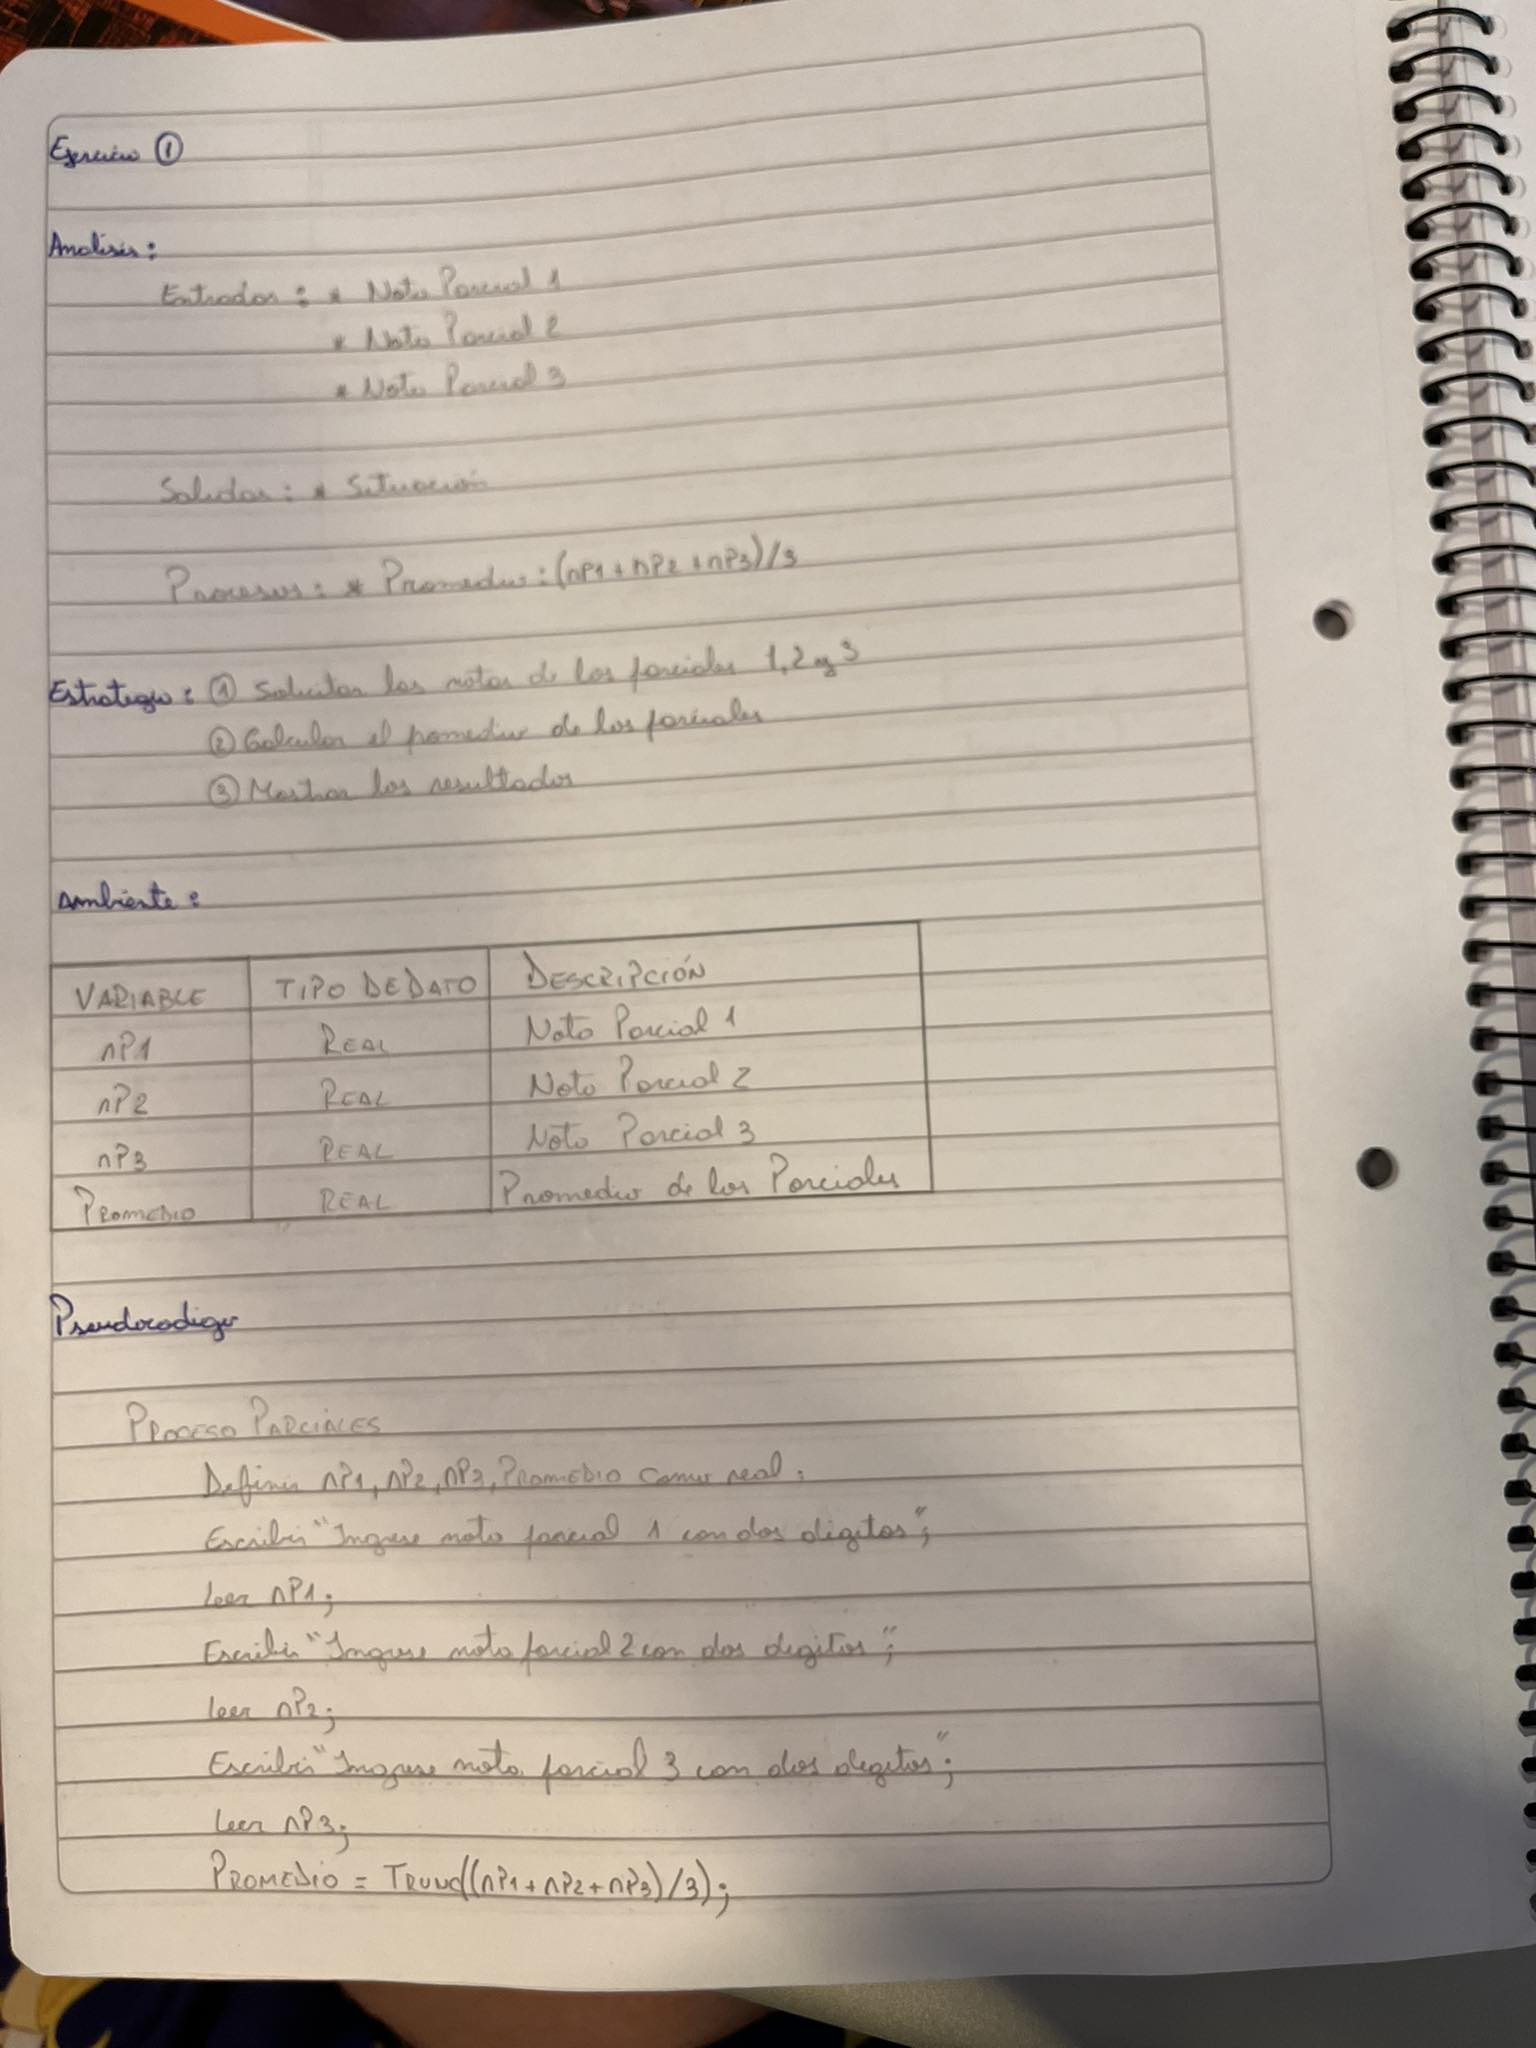 Ejercicio ①
Analisis:
Entradas: * Nota Parcial 1
* Nota Parcial 2
* Nota Parcial 3
Salidas: * Situación
Procesos: * Promedio: (nP1+nP2+nP3)/3
Estrategia: ① Solicitar las notas de los parciales 1, 2 y 3
② Calcular el pomedio de los parciales
③ Mostrar los resultados
Ambiente:
VARIABLE TIPO DE DATO DESCRIPCIÓN
nP1 REAL Nota Parcial 1
nP2 REAL Nota Parcial 2
nP3 REAL Nota Parcial 3
PROMEDIO REAL Promedio de los Parciales
Pseudocodigo
PROCESO PARCIALES
Definir nP1, nP2, nP3, PROMEDIO como real;
Escribir "Ingrese nota parcial 1 con dos digitos";
Leer nP1;
Escribir "Ingrese nota parcial 2 con dos digitos";
Leer nP2;
Escribir "Ingrese nota parcial 3 con dos digitos";
Leer nP3;
PROMEDIO = TRUNC((nP1+nP2+nP3)/3);